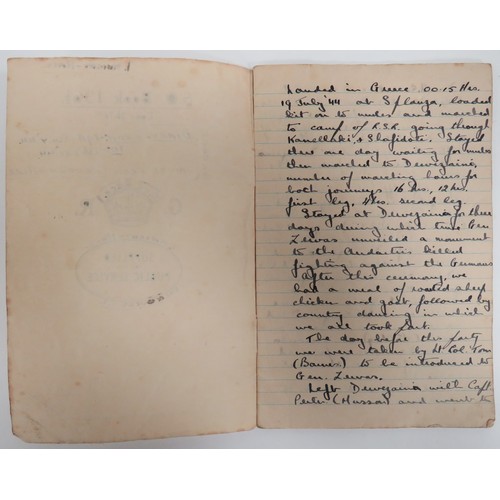 Landed in Greece 00.15 Hrs.
19 July '44 at Splanza, loaded
kit on to mules and marched
to camp of R.S.R. going through
Kanellaki & Slafidati. Stayed
there one day waiting for mules
then marched to Dewiziana,
number of marching hours for
both journeys 16 hrs, 12 hrs.
first leg, 4 hrs. second leg.
Stayed at Dewiziana for three
days during which time Gen.
Zervas unveiled a monument
to the Andartes killed
fighting against the Germans
After this ceremony, we
had a meal of roasted sheep
chicken and goat, followed by
country dancing in which
we all took part.
The day before this party
we were taken by Lt. Col. Tom
(Barnes) to be introduced to
Gen. Zervas.
Left Dewiziana with Capt
(Hussar) and went to